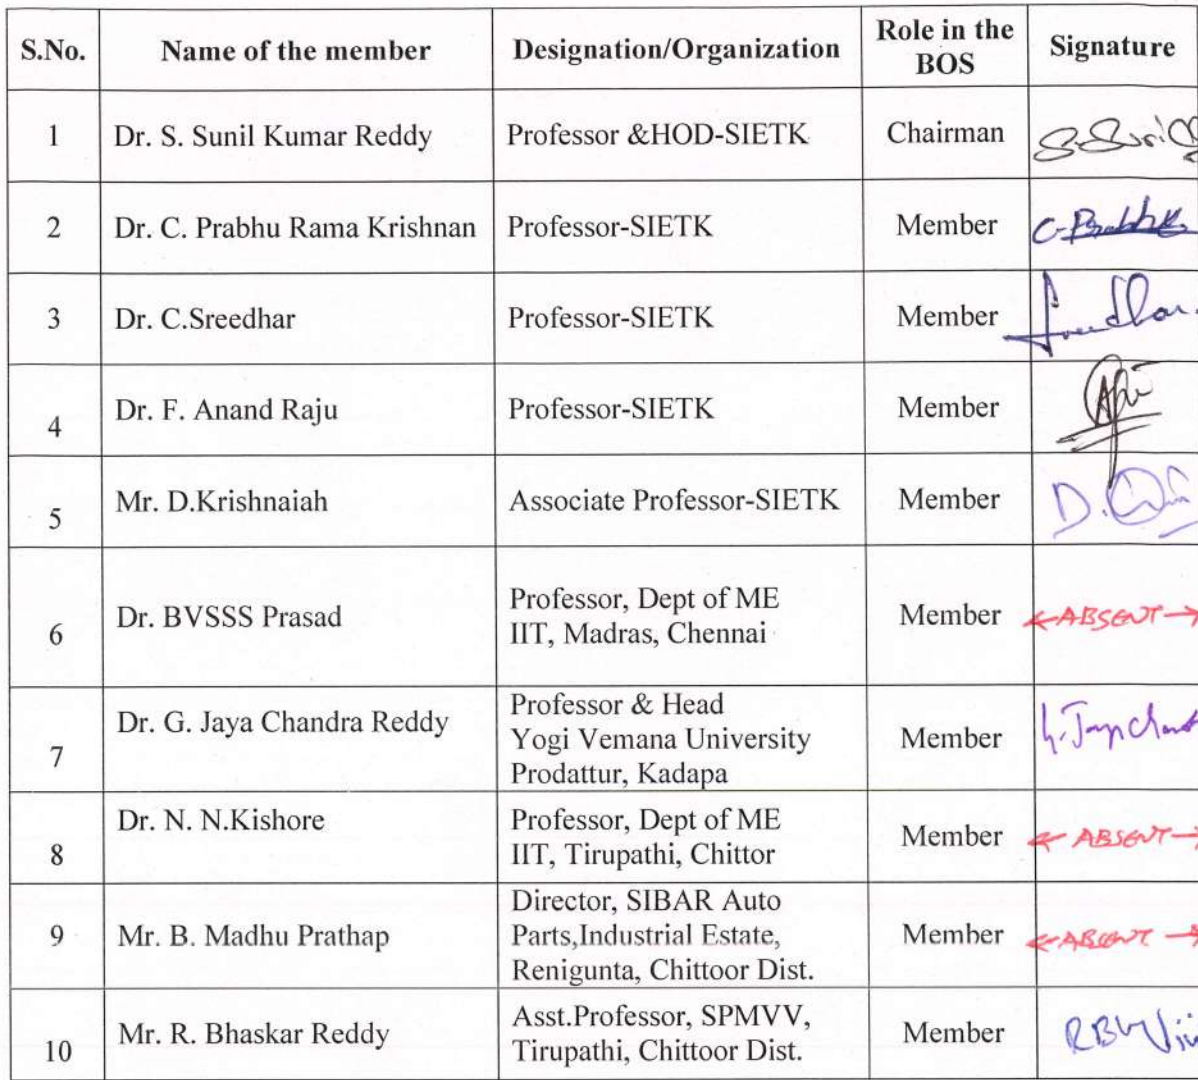 S.No. Name of the member Designation/Organization Role in the BOS Signature
1 Dr. S. Sunil Kumar Reddy Professor &HOD-SIETK Chairman
2 Dr. C. Prabhu Rama Krishnan Professor-SIETK Member
3 Dr. C.Sreedhar Professor-SIETK Member
4 Dr. F. Anand Raju Professor-SIETK Member
5 Mr. D.Krishnaiah Associate Professor-SIETK Member
6 Dr. BVSSS Prasad Professor, Dept of ME
IIT, Madras, Chennai Member ABSENT
7 Dr. G. Jaya Chandra Reddy Professor & Head
Yogi Vemana University
Prodattur, Kadapa Member
8 Dr. N. N.Kishore Professor, Dept of ME
IIT, Tirupathi, Chittor Member ABSENT
9 Mr. B. Madhu Prathap Director, SIBAR Auto
Parts,Industrial Estate,
Renigunta, Chittoor Dist. Member ABSENT
10 Mr. R. Bhaskar Reddy Asst.Professor, SPMVV,
Tirupathi, Chittoor Dist. Member